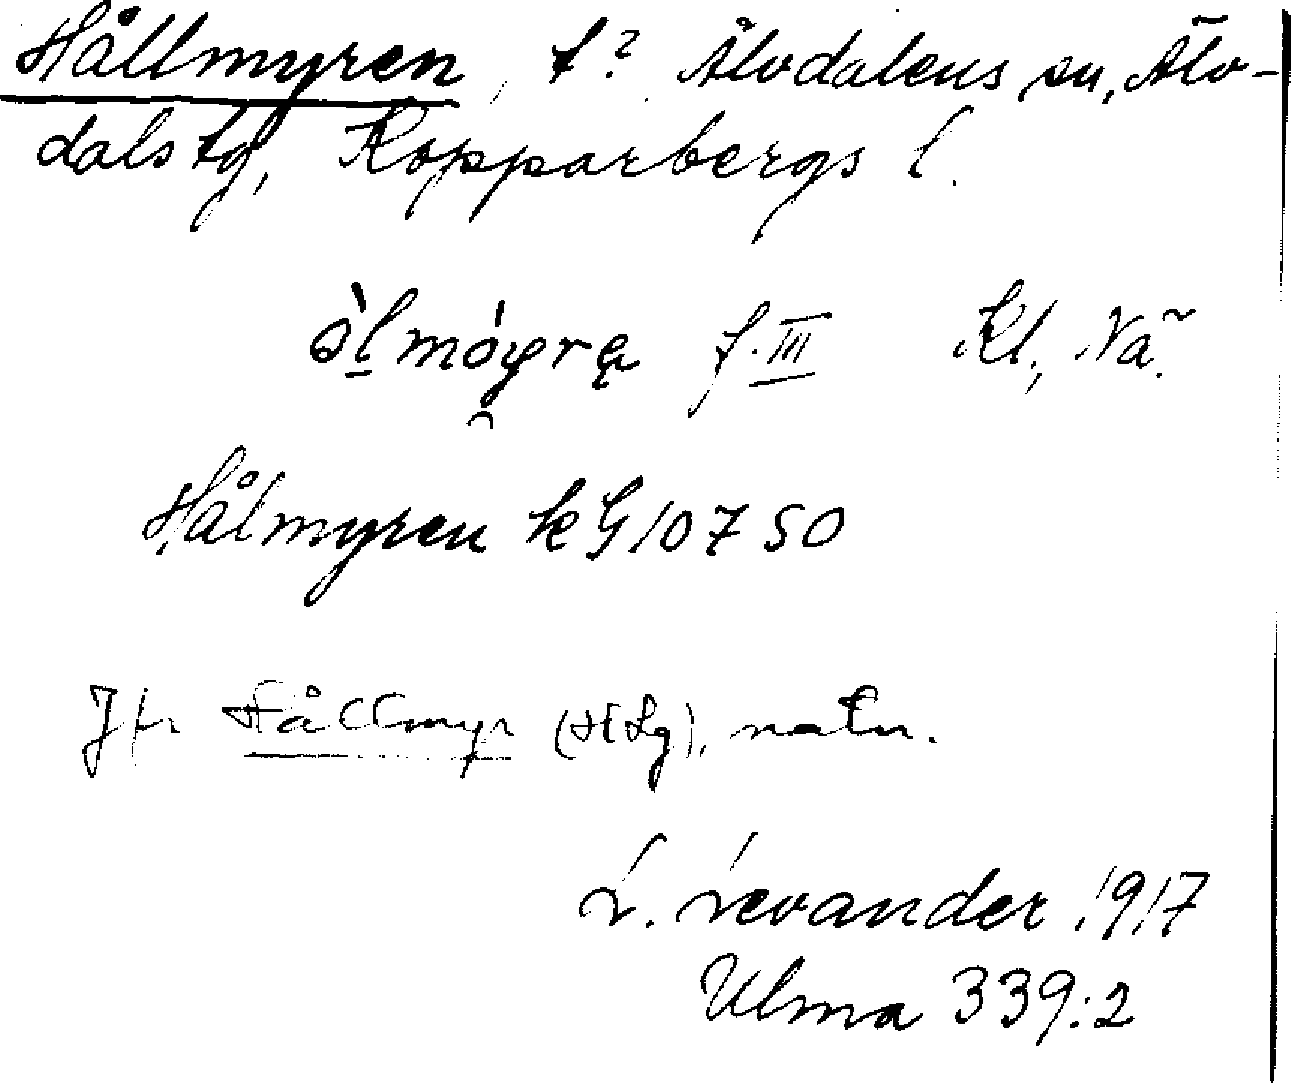 Hållmyren, t? Älvdalens sn, Älv-
dals tg, Kopparbergs l.
òl̠móyrą f. III Kl., Nä.
Hålmyren kG 10750
Jfr Hållmyr (HLg), natn.
L. Levander 1917
Ulma 339:2